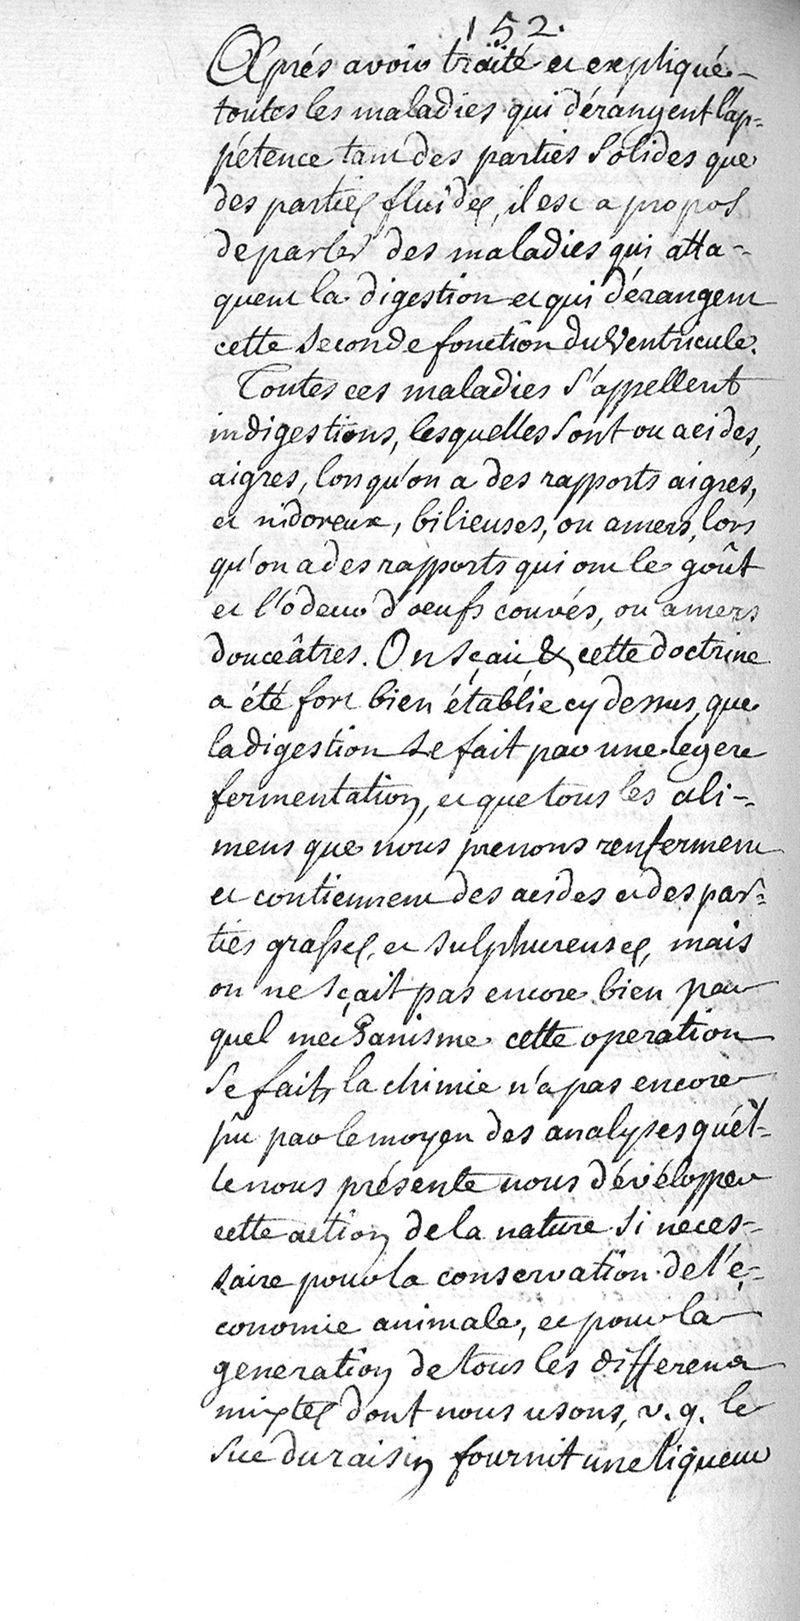 152.
Après avoir traité et expliqué
toutes les maladies qui dérangent l'ap-
pétence tant des parties solides que
des parties fluides, il est a propos
de parler des maladies qui atta-
quent la digestion et qui dérangent
cette seconde fonction du Ventricule.
Toutes ces maladies s'appellent
indigestions, lesquelles sont ou acides,
aigres, lorsqu'on a des rapports aigres,
et nidoreux, bilieuses, ou amers, lors
qu'on a des rapports qui ont le goût
et l'odeur d'oeufs couvés, ou amers
douceâtres. On sçait & cette doctrine
a été fort bien établie cy dessus, que
la digestion se fait par une legere
fermentation, et que tous les ali-
mens que nous prenons renferment
et contiennent des acides et des par-
ties grasses, et sulphureuses, mais
on ne sçait pas encore bien par
quel mechanisme cette operation
se fait, la chimie n'a pas encore
pû par le moyen des analyses qu'el-
le nous présente nous développer
cette action de la nature si neces-
saire pour la conservation de l'é-
conomie animale, et pour la
generation de tous les differens
mixtes dont nous usons, v. g. le
suc du raisin fournit une liqueur